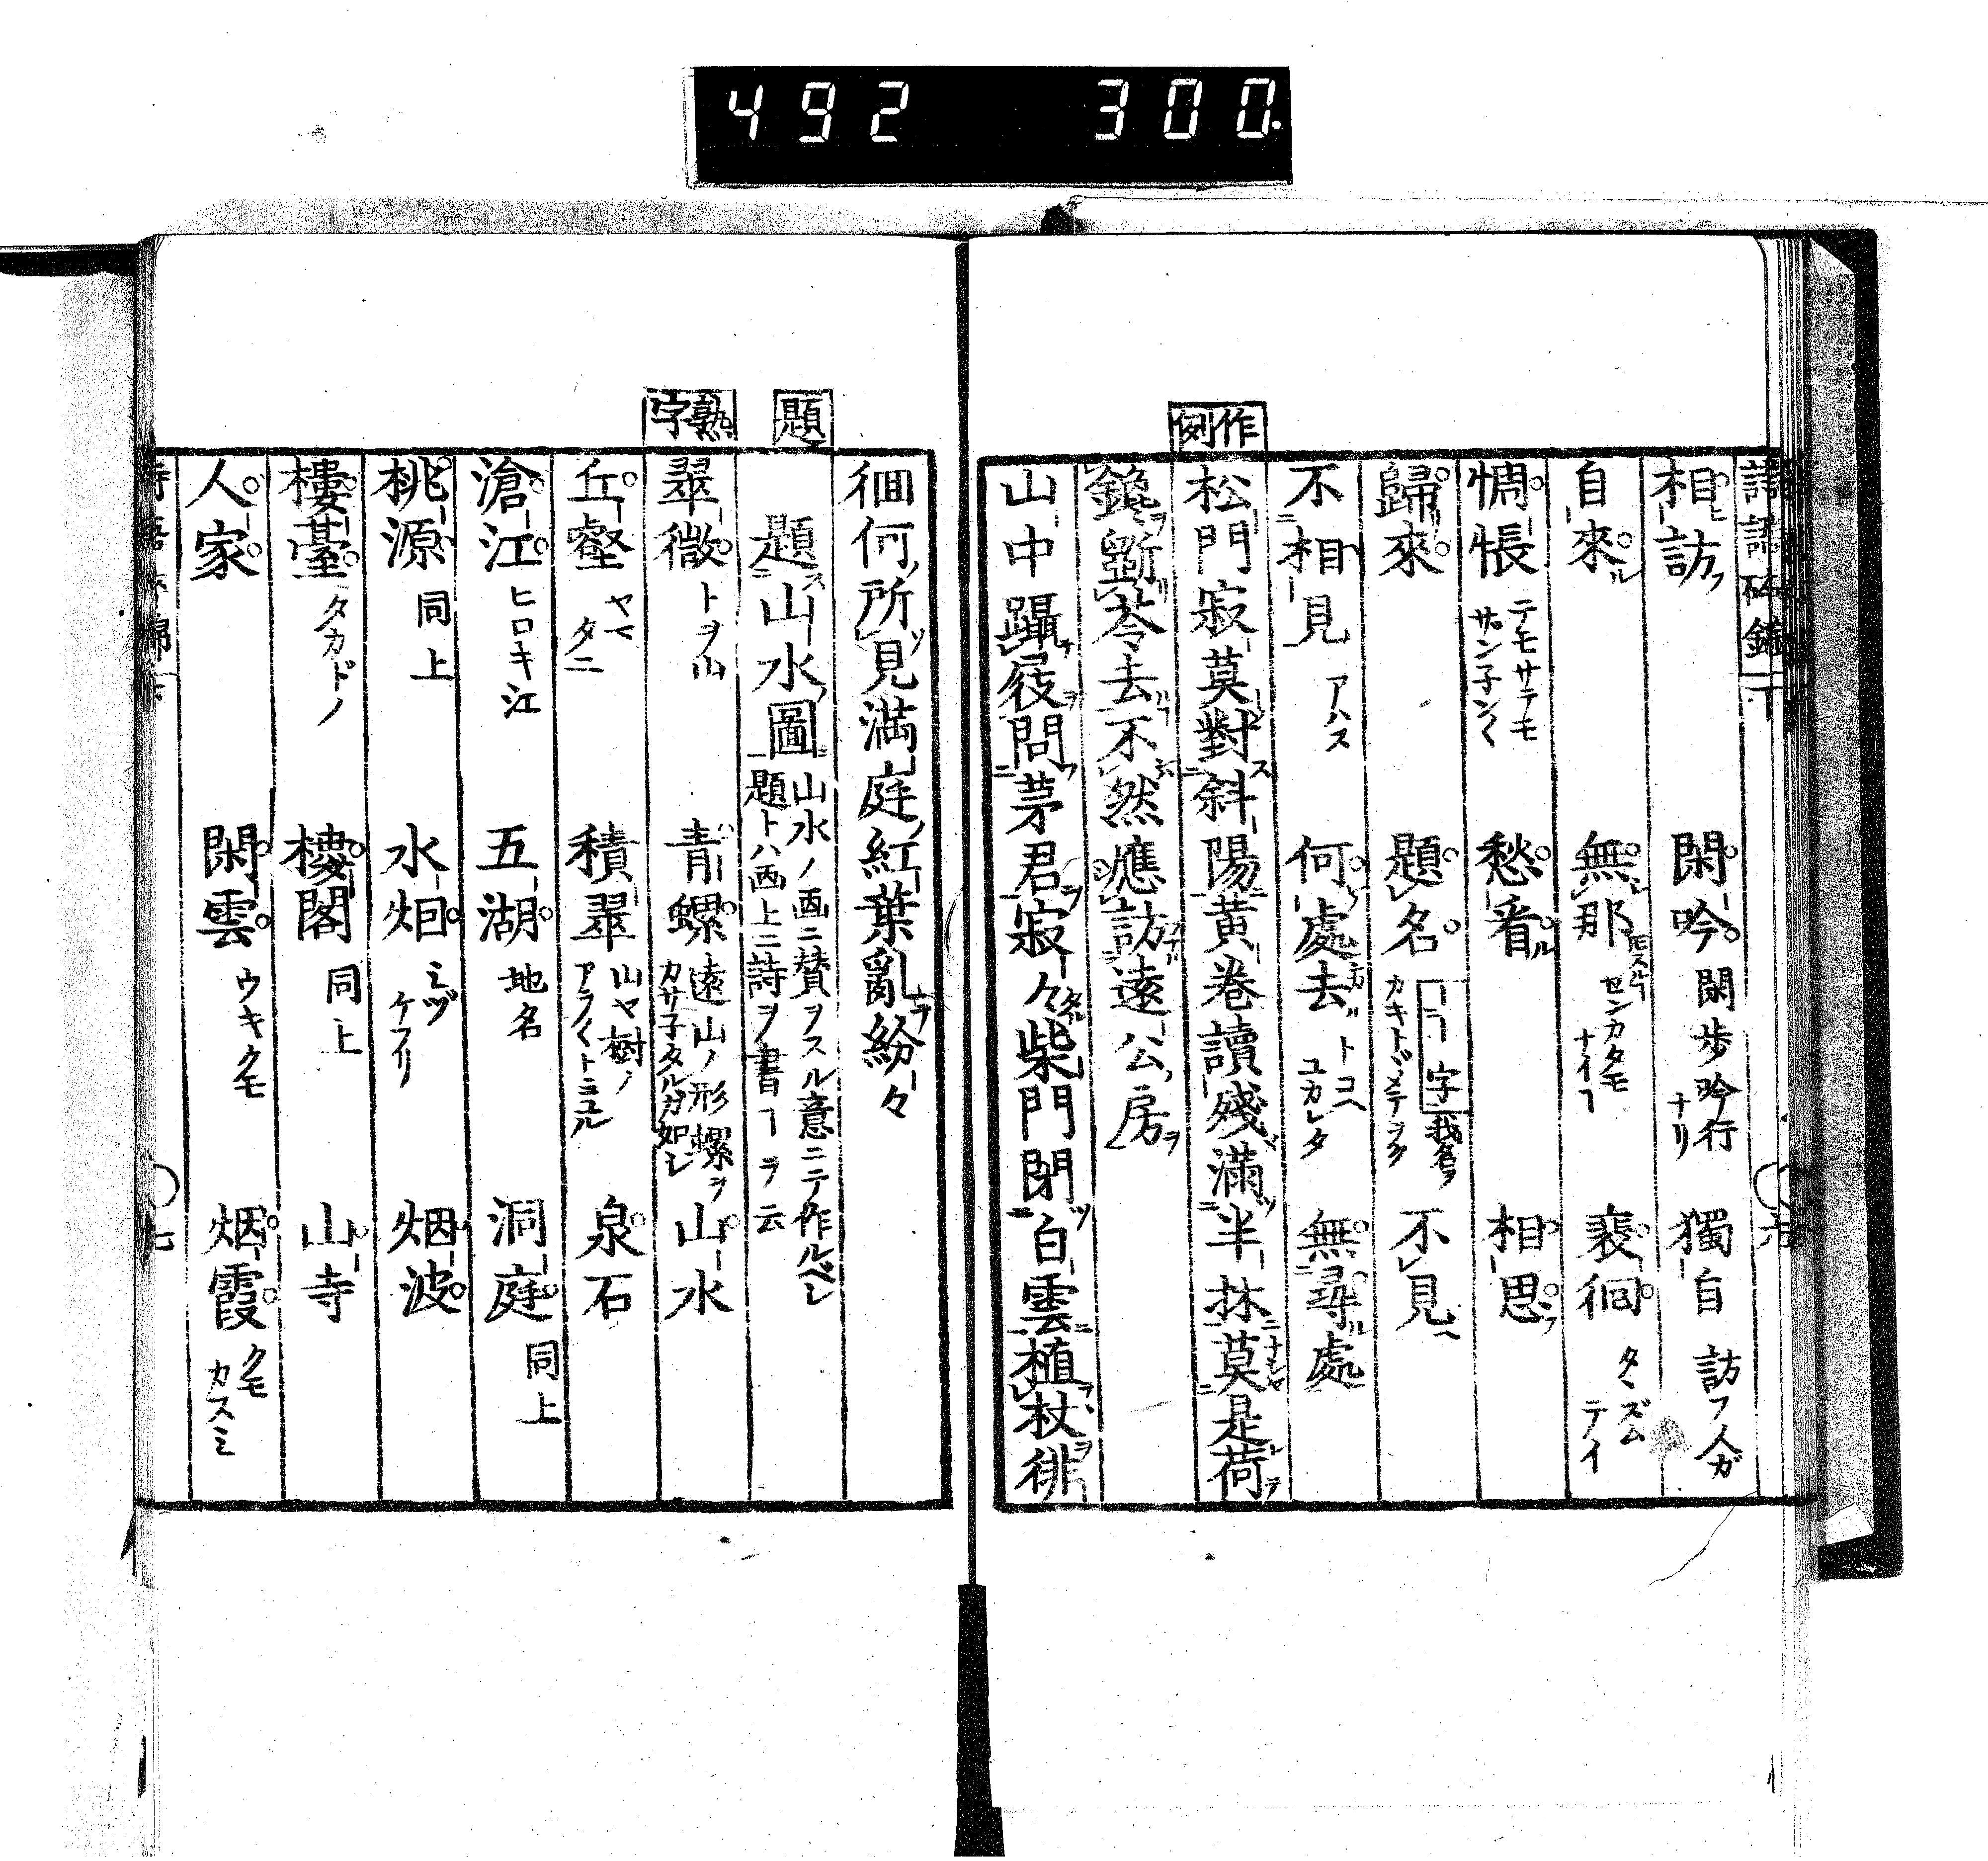 492 300.
詩語砕錦 下
相訪フ 閑吟 閑歩吟行ナリ 獨自 訪フ人ガ
自來ル 無那 センカタモナイヿ 裴徊 タヽズムテイ
惆悵 テモサテモザンネン〱 愁看ル 相思フ
歸來 題名 カキトドメテヲク 不見
不相見 アハス 何處去 トコヘユカレタ 無尋處
作例
松門寂莫對斜陽黄巻讀殘滿半牀莫是荷
鑱斸苓去不然應訪遠公房
山中躡屐問茅君寂々柴門閉白雲植杖徘
六
徊何所見滿庭紅葉亂紛々
題
題山水圖 山水ノ画ニ賛ヲスル意ニテ作ルベシ
題トハ画上ニ詩ヲ書ヿヲ云
熟字
翠微 トヲ山 青螺 遠山ノ形螺ヲカサ子タルガ如シ 山水
丘壑 ヤマタニ 積翠 山ヤ樹ノアヲ〱トミユル 泉石
滄江 ヒロキ江 五湖 地名 洞庭 同上
桃源 同上 水烟 ミヅケフリ 烟波
樓臺 タカドノ 樓閣 同上 山寺
人家 閑雲 ウキクモ 烟霞 クモカスミ
七